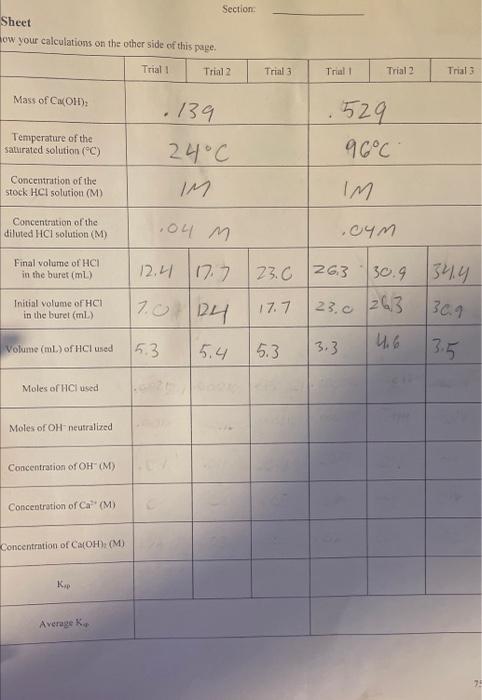 Section:
Sheet
ow your calculations on the other side of this page.
Trial 1 Trial 2 Trial 3 Trial 1 Trial 2 Trial 3
Mass of Ca(OH)₂ .139 .529
Temperature of the
saturated solution (°C) 24°C 96°C
Concentration of the
stock HCl solution (M) 1M 1M
Concentration of the
diluted HCl solution (M) .04 M .04M
Final volume of HCl
in the buret (mL) 12.4 17.7 23.0 26.3 30.9 34.4
Initial volume of HCl
in the buret (mL) 7.0 12.4 17.7 23.0 26.3 30.9
Volume (mL) of HCl used 5.3 5.4 5.3 3.3 4.6 3.5
Moles of HCl used
Moles of OH⁻ neutralized
Concentration of OH⁻ (M)
Concentration of Ca²⁺ (M)
Concentration of Ca(OH)₂ (M)
Ksp
Average Ksp